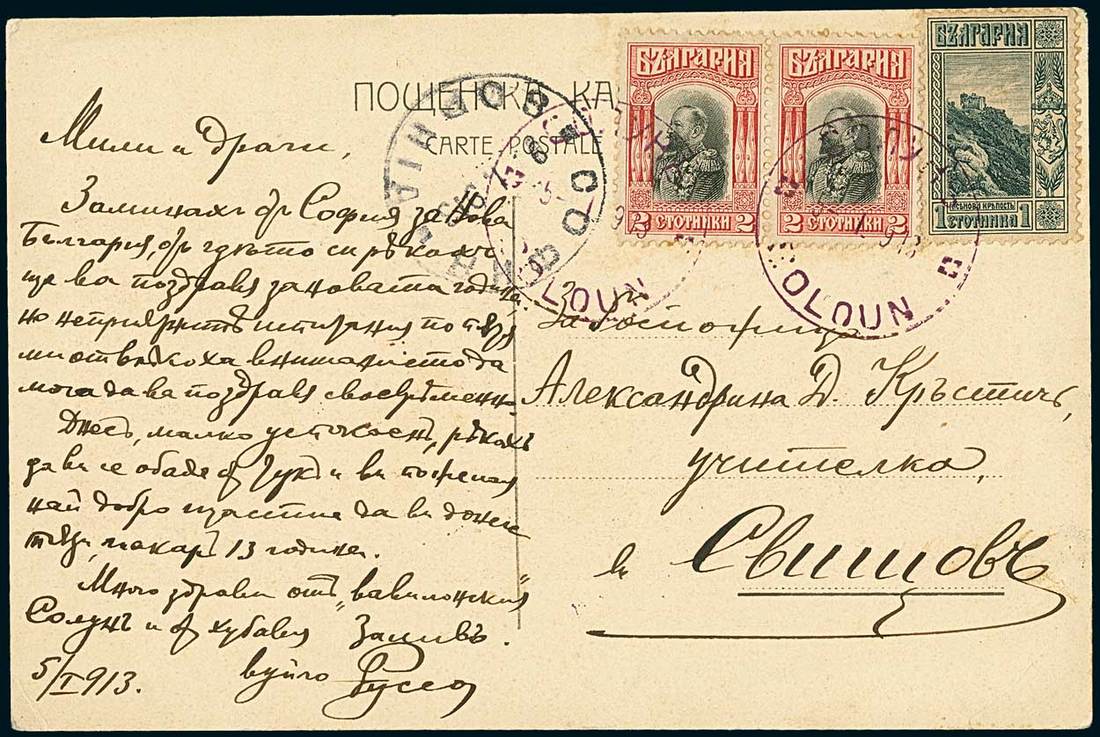 ПОЩЕНСКА КА
CARTE POSTALE
БЪЛГАРИЯ
2 СТОТИНКИ 2
БЪЛГАРИЯ
2 СТОТИНКИ 2
БЪЛГАРИЯ
1 СТОТИНКА 1
SOLOUN
Мили и драги,
Заминахъ отъ София за Нова
България, отъ гдѣто си рѣкохъ
ще ва поздравя за новата година
но неприятнитѣ
вниманието да
мога да ва поздравя своеврѣменно.
Днесъ, малко рѣкохъ
да ви се обадя отъ тукъ и ви пожелая
най добро щастие да ви донесе
тази, макаръ 13 година.
Много здраве отъ „вавилонския"
Солунъ и отъ хубавия Заливъ.
5/I 913. вуйчо Русевъ
За Госпожица
Александрина Д. Кръстичъ,
учителка,
въ Свищовъ